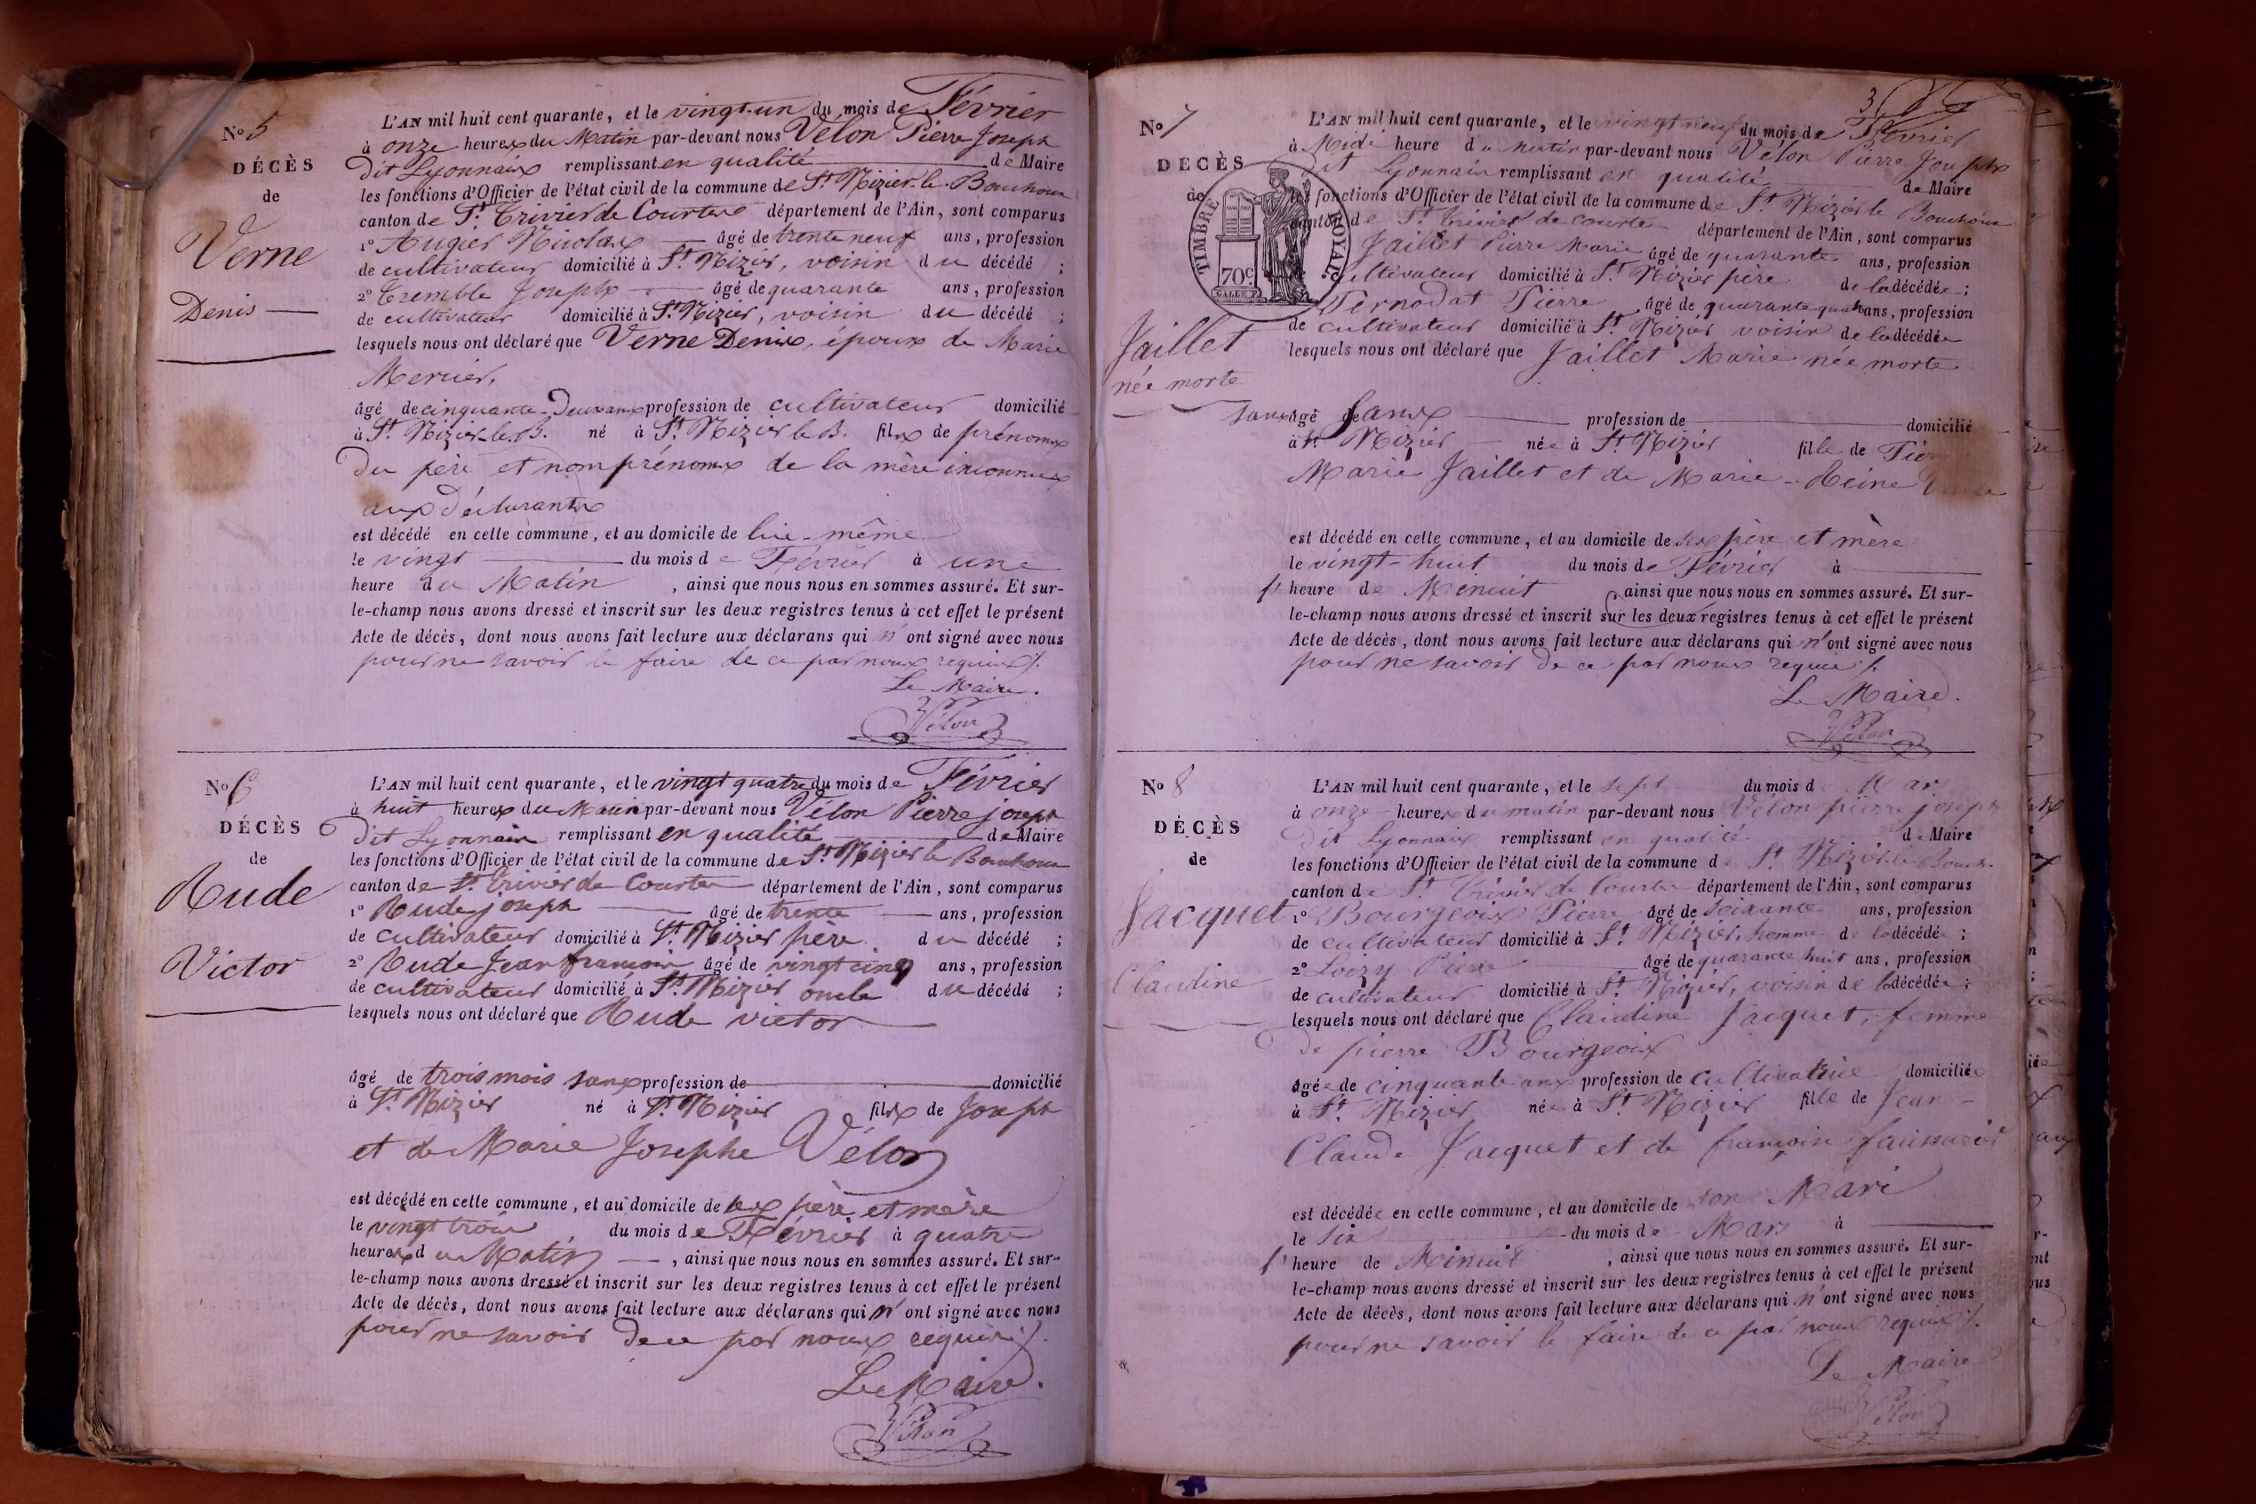 No 5
DÉCÈS
de
Verne
Denis
L'AN mil huit cent quarante, et le vingt-un du mois de Février
à onze heures du Matin par-devant nous Vélon Pierre Joseph
dit Lyonnais remplissant en qualité de Maire
les fonctions d'Officier de l'état civil de la commune de St Nizier-le-Bouchoux
canton de St Trivier de Courtes département de l'Ain, sont comparus
1° Augier Nicolas âgé de trente neuf ans, profession
de cultivateur domicilié à St Nizier, voisin du décédé ;
2° Tremble Joseph âgé de quarante ans, profession
de cultivateur domicilié à St Nizier, voisin du décédé ;
lesquels nous ont déclaré que Verne Denis, époux de Marie
Mercier,
âgé de cinquante-deux ans profession de cultivateur domicilié
à St Nizier-le-B. né à St Nizier le B. fils de prénoms
du père et nom prénoms de la mère inconnus
aux déclarants
est décédé en cette commune, et au domicile de lui-même
le vingt du mois de Février à une
heure du Matin, ainsi que nous nous en sommes assuré. Et sur-
le-champ nous avons dressé et inscrit sur les deux registres tenus à cet effet le présent
Acte de décès, dont nous avons fait lecture aux déclarans qui n'ont signé avec nous
pour ne savoir le faire de ce par nous requis ./.
Le Maire.
Vélon
No 6
DÉCÈS
de
Rude
Victor
L'AN mil huit cent quarante, et le vingt quatre du mois de Février
à huit heures du Matin par-devant nous Vélon Pierre joseph
dit Lyonnais remplissant en qualité de Maire
les fonctions d'Officier de l'état civil de la commune de St Nizier le Bouchoux
canton de St Trivier de Courtes département de l'Ain, sont comparus
1° Rude joseph âgé de trente ans, profession
de cultivateur domicilié à St Nizier père du décédé ;
2° Rude Jean françois âgé de vingt cinq ans, profession
de cultivateur domicilié à St Nizier oncle du décédé ;
lesquels nous ont déclaré que Rude victor
âgé de trois mois sans profession de domicilié
à St Nizier né à St Nizier fils de Joseph
et de Marie Josephe Vélon
est décédé en cette commune, et au domicile de ses père et mère
le vingt trois du mois de Février à quatre
heures du Matin, ainsi que nous nous en sommes assuré. Et sur-
le-champ nous avons dressé et inscrit sur les deux registres tenus à cet effet le présent
Acte de décès, dont nous avons fait lecture aux déclarans qui n'ont signé avec nous
pour ne savoir de ce par nous requis ./.
Le Maire.
Vélon
3
No 7
DÉCÈS
de
TIMBRE ROYAL
70c.
Jaillet
née morte
L'AN mil huit cent quarante, et le vingt neuf du mois de Février
à Midi heure du matin par-devant nous Vélon Pierre Joseph
dit Lyonnais remplissant en qualité de Maire
les fonctions d'Officier de l'état civil de la commune de St Nizier le Bouchoux
canton de St Trivier de Courtes département de l'Ain, sont comparus
Jaillet Pierre Marie âgé de quarante ans, profession
cultivateur domicilié à St Nizier père de la décédée ;
Pernodat Pierre âgé de quarante quatre ans, profession
de cultivateur domicilié à St Nizier voisin de la décédée
lesquels nous ont déclaré que Jaillet Marie née morte
sans âgé de sans profession de domicilié
à St Nizier née à St Nizier fille de
Marie Jaillet et de Marie-Reine
est décédé en cette commune, et au domicile de ses père et mère
le vingt-huit du mois de Février à
heure de Minuit, ainsi que nous nous en sommes assuré. Et sur-
le-champ nous avons dressé et inscrit sur les deux registres tenus à cet effet le présent
Acte de décès, dont nous avons fait lecture aux déclarans qui n'ont signé avec nous
pour ne savoir de ce par nous requis ./.
Le Maire.
Vélon
No 8
DÉCÈS
de
Jacquet
Claudine
L'AN mil huit cent quarante, et le sept du mois de Mars
à onze heures du matin par-devant nous Vélon pierre joseph
dit Lyonnais remplissant en qualité de Maire
les fonctions d'Officier de l'état civil de la commune de St Nizier le Bouch.
canton de St Trivier de Courtes département de l'Ain, sont comparus
1° Bourgeois Pierre âgé de soixante ans, profession
de cultivateur domicilié à St Nizier, homme de la décédée ;
2° Loizy Pierre âgé de quarante huit ans, profession
de cultivateur domicilié à St Nizier, voisin de la décédée ;
lesquels nous ont déclaré que Claudine Jacquet, femme
de pierre Bourgeois
âgée de cinquante ans profession de cultivatrice domiciliée
à St Nizier née à St Nizier fille de Jean-
Claude Jacquet et de françoise
est décédée en cette commune, et au domicile de son Mari
le six du mois de Mars à
heure de Minuit, ainsi que nous nous en sommes assuré. Et sur-
le-champ nous avons dressé et inscrit sur les deux registres tenus à cet effet le présent
Acte de décès, dont nous avons fait lecture aux déclarans qui n'ont signé avec nous
pour ne savoir le faire de ce par nous requis ./.
Le Maire
Vélon